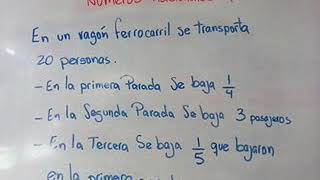 Números
En un vagón ferrocarril se transporta
20 personas.
- En la primera Parada Se baja 1/4
- En la Segunda Parada Se baja 3 pasajeros
- En la Tercera Se baja 1/5 que bajaron
en la primera